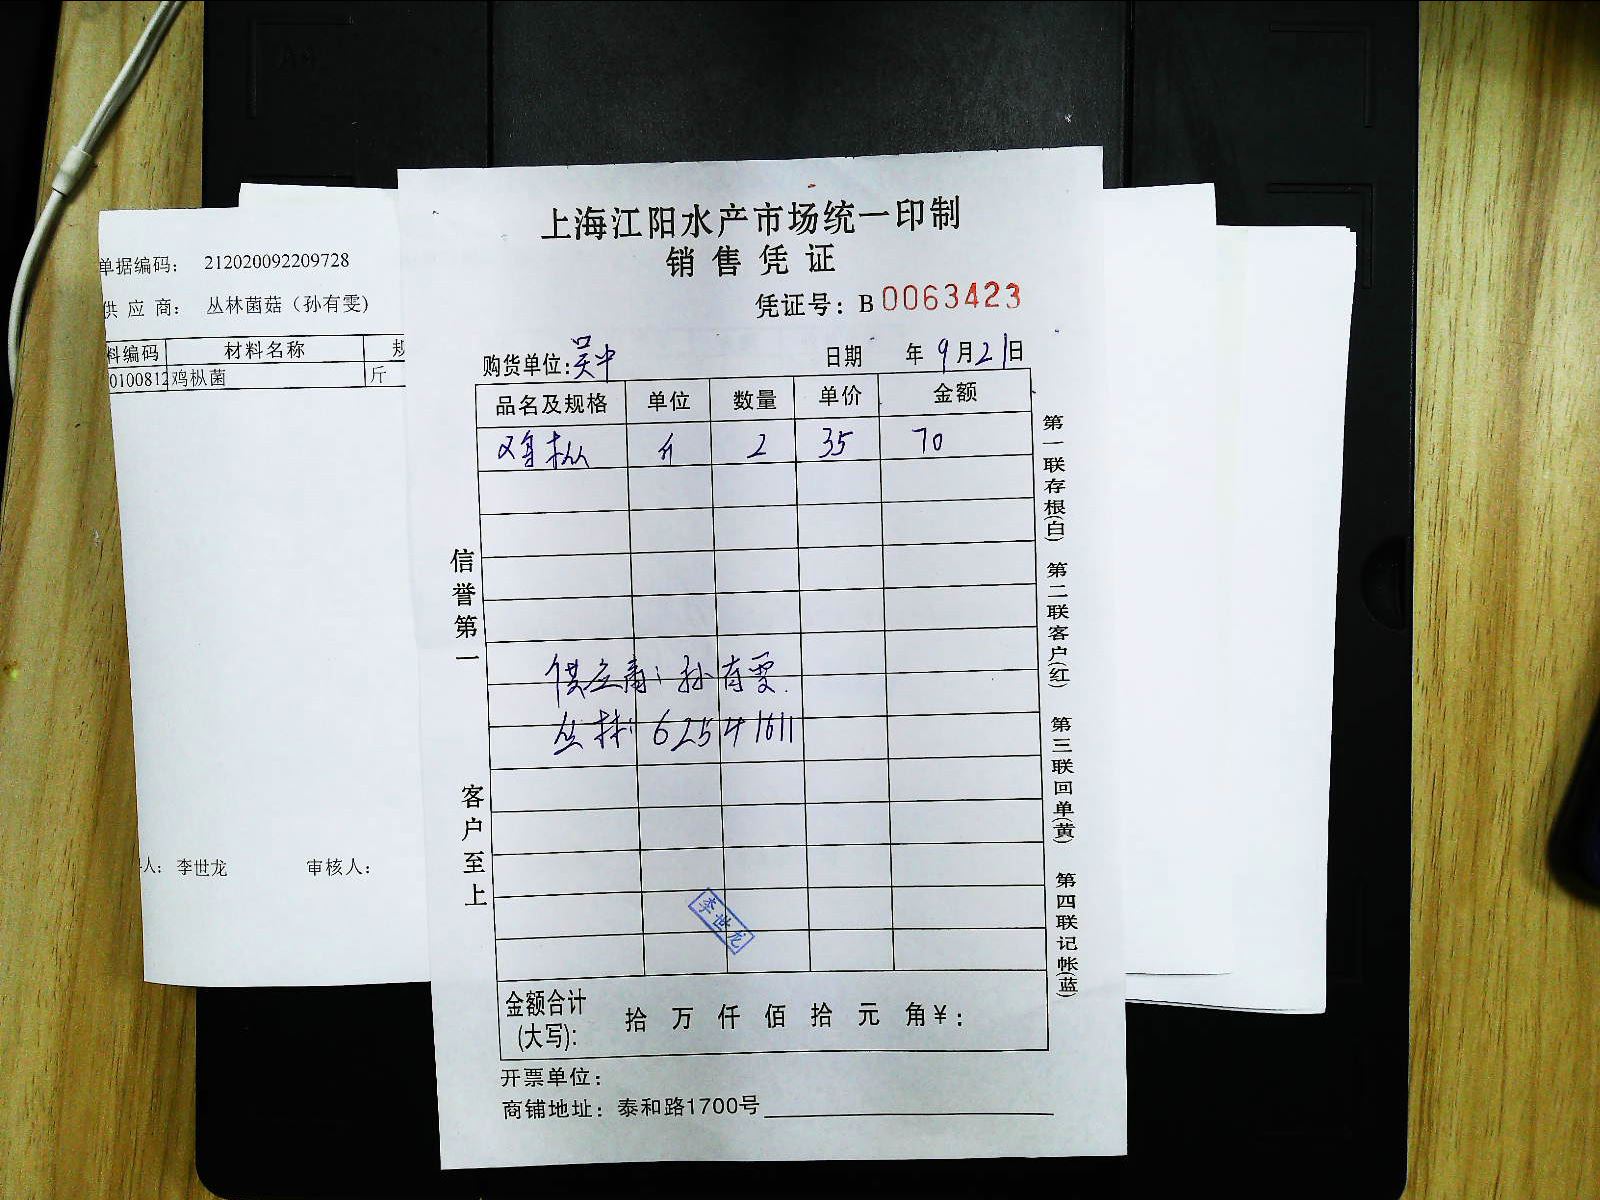 单据编码： 212020092209728
供 应 商： 丛林菌菇（孙有雯）
料编码 材料名称 规
0100812 鸡枞菌 斤
人： 李世龙 审核人：
上海江阳水产市场统一印制
销售凭证
凭证号：B 0063423
购货单位：吴中 日期 年 9月21日
品名及规格 单位 数量 单价 金额
鸡枞 斤 2 35 70
供应商：孙有雯
丛林 62541611
李世龙
金额合计
(大写)： 拾 万 仟 佰 拾 元 角￥：
开票单位：
商铺地址：泰和路1700号
信誉第一
客户至上
第一联存根(白) 第二联客户(红) 第三联回单(黄) 第四联记帐(蓝)